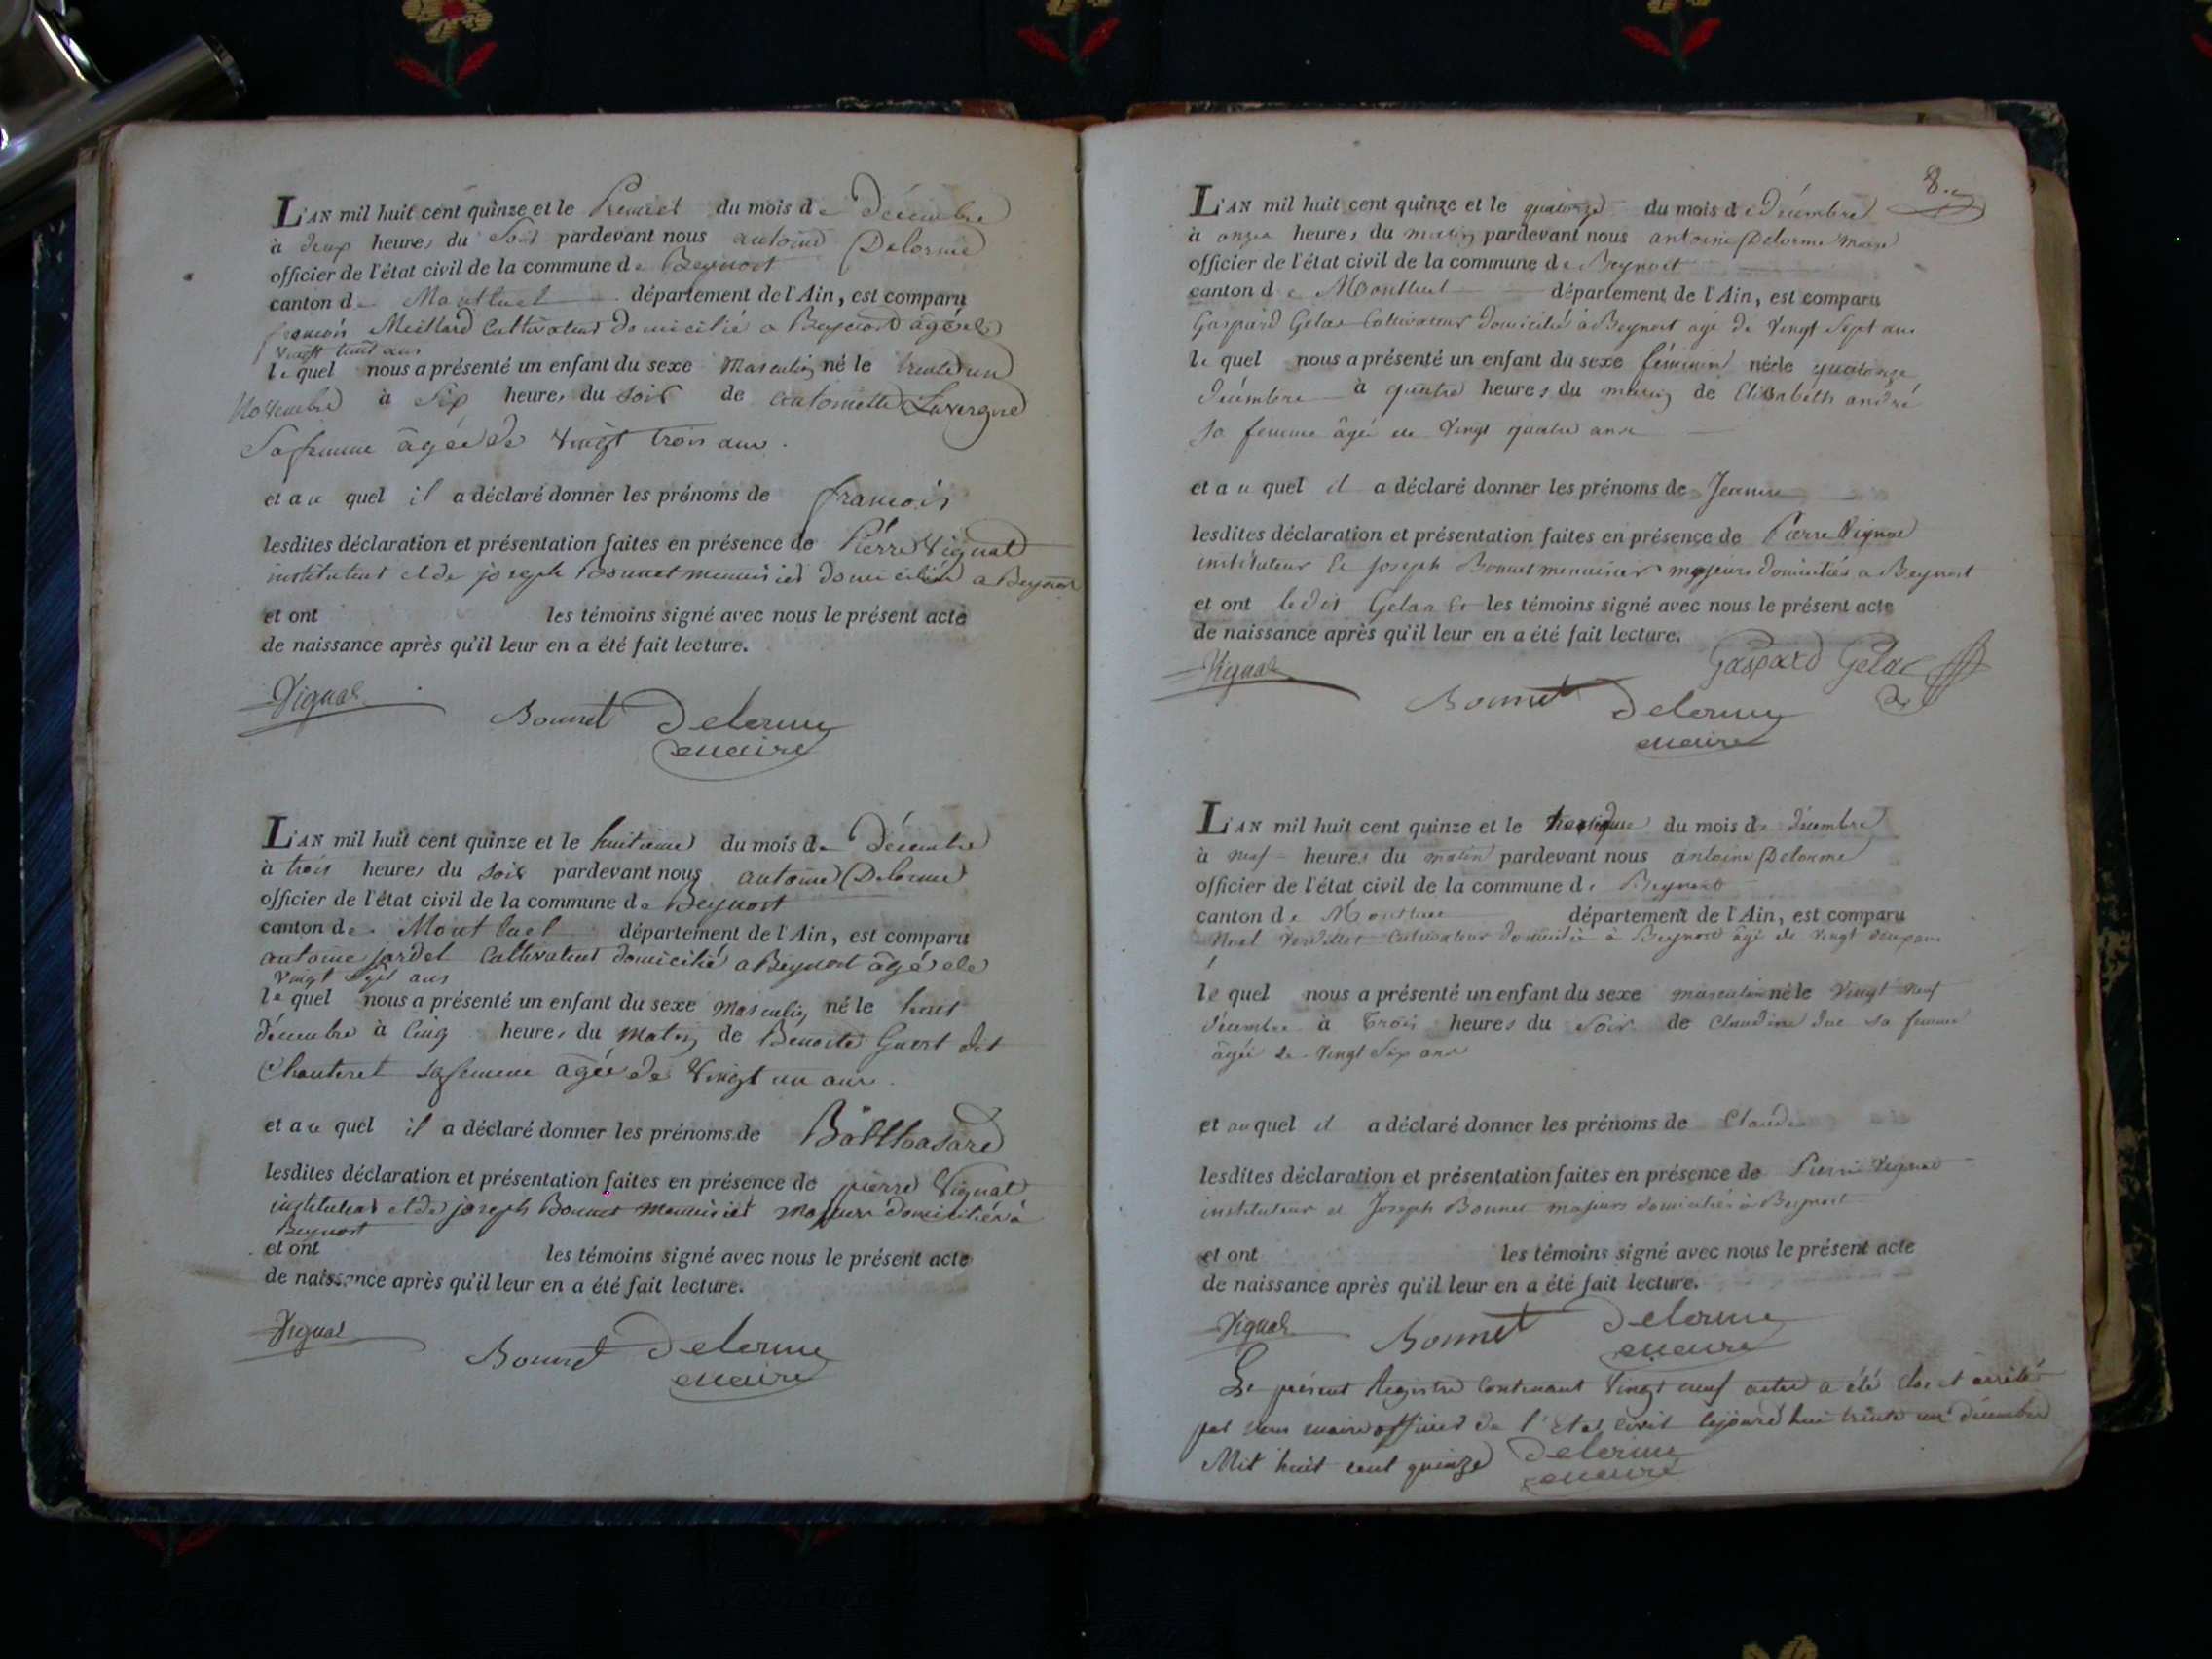 L'AN mil huit cent quinze et le Premier du mois de Décembre
à deux heures du Soir pardevant nous antoine Delorme
officier de l'état civil de la commune de Beynost
canton de Montluel département de l'Ain, est comparu
francois Meillard Cultivateur domicilié a Beynost âgé de
vingt huit ans
le quel nous a présenté un enfant du sexe Masculin né le trente un
Novembre à Six heures du soir de antoinette Lavergne
Sa femme âgée de vingt trois ans.
et au quel il a déclaré donner les prénoms de francois
lesdites déclaration et présentation faites en présence de Pierre Vignat
instituteur et de joseph Bonnet menuisier domiciliés a Beynost
et ont les témoins signé avec nous le présent acte
de naissance après qu'il leur en a été fait lecture.
Vignat
Bonnet Delorme
maire
L'AN mil huit cent quinze et le huitième du mois de Décembre
à trois heures du soir pardevant nous antoine Delorme
officier de l'état civil de la commune de Beynost
canton de Montluel département de l'Ain, est comparu
antoine jardet Cultivateur domicilié a Beynost âgé de
vingt Sept ans
le quel nous a présenté un enfant du sexe Masculin né le huit
décembre à Cinq heures du Matin de Benoite Guert dit
Chanteret sa femme âgée de Vingt un ans.
et au quel il a déclaré donner les prénoms de Balthasard
lesdites déclaration et présentation faites en présence de pierre Vignat
instituteur et de joseph Bonnet menuisier majeurs domiciliés à
Beynost
et ont les témoins signé avec nous le présent acte
de naissance après qu'il leur en a été fait lecture.
Vignat
Bonnet Delorme
maire
8.
L'AN mil huit cent quinze et le quatorze du mois de Décembre
à onze heures du matin pardevant nous antoine Delorme Maire
officier de l'état civil de la commune de Beynost
canton de Montluel département de l'Ain, est comparu
Gaspard Gelas Cultivateur domicilié à Beynost agé de vingt Sept ans
le quel nous a présenté un enfant du sexe féminin née le quatorze
décembre à quatre heures du matin de Elisabeth andré
sa femme âgée de vingt quatre ans
et au quel il a déclaré donner les prénoms de Jeanne
lesdites déclaration et présentation faites en présence de Pierre Vignat
instituteur Et Joseph Bonnet menuisier majeurs domiciliés a Beynost
et ont ledit Gelas Et les témoins signé avec nous le présent acte
de naissance après qu'il leur en a été fait lecture.
Vignat Gaspard Gelas
Bonnet Delorme
maire
L'AN mil huit cent quinze et le du mois de décembre
à neuf heures du matin pardevant nous antoine Delorme
officier de l'état civil de la commune de Beynost
canton de Montluel département de l'Ain, est comparu
Noël Cultivateur domicilié à Beynost âgé de vingt
le quel nous a présenté un enfant du sexe masculin né le vingt neuf
décembre à trois heures du soir de Claudine duc sa femme
âgée de vingt Six ans
et auquel il a déclaré donner les prénoms de Claude
lesdites déclaration et présentation faites en présence de Pierre Vignat
instituteur et Joseph Bonnet majeurs domiciliés à Beynost
et ont les témoins signé avec nous le présent acte
de naissance après qu'il leur en a été fait lecture.
Vignat Bonnet Delorme
maire
Le présent Registre Contenant Vingt neuf actes a été clos et arrêté
par nous maire officier de l'Etat civil cejourd'hui trente un décembre
Mil huit cent quinze Delorme
maire